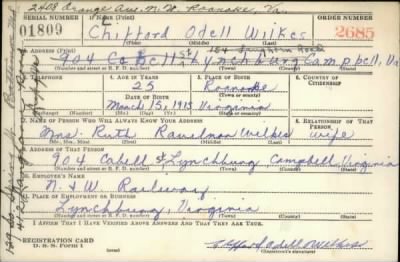 2408 Orange Ave. N.W. Roanoke, Va.
SERIAL NUMBER 1. NAME (Print) ORDER NUMBER
01809 Clifford Odell Wilkes 2685
2. ADDRESS (Print)
904 Cabell St Lynchburg Campbell, Va
(Number and street or R. F. D. number) (Town) (County) (State)
3. TELEPHONE 4. AGE IN YEARS 5. PLACE OF BIRTH 6. COUNTRY OF CITIZENSHIP
25 Roanoke
DATE OF BIRTH
March 15, 1915 Virginia
(Mo.) (Day) (Yr.) (State or country)
7. NAME OF PERSON WHO WILL ALWAYS KNOW YOUR ADDRESS 8. RELATIONSHIP OF THAT PERSON
Mrs. Ruth Wilkes wife
(Mr., Mrs., Miss) (First) (Middle) (Last)
9. ADDRESS OF THAT PERSON
904 Cabell St Lynchburg Campbell, Virginia
(Number and street or R. F. D. number) (Town) (County) (State)
10. EMPLOYER'S NAME
N. & W. Railway
11. PLACE OF EMPLOYMENT OR BUSINESS
Lynchburg, Virginia
(Number and street or R. F. D. number) (Town) (County) (State)
I AFFIRM THAT I HAVE VERIFIED ABOVE ANSWERS AND THAT THEY ARE TRUE.
REGISTRATION CARD
D. S. S. Form 1 Clifford Odell Wilkes